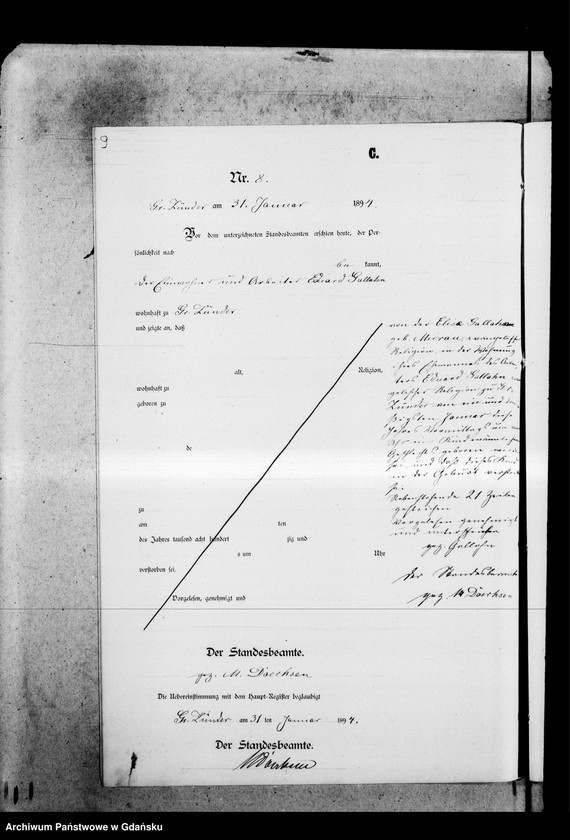 9
C.
Nr. 8.
Gr. Zünder am 31. Januar 1894.
Vor dem unterzeichneten Standesbeamten erschien heute, der Per-
sönlichkeit nach
be kannt,
der Einwohner und Arbeiter Eduard Gallahn
wohnhaft zu Gr. Zünder
und zeigte an, daß
von der Elise Gallahn
geb. Meran, evangelisch
alt, Religion,
Religion, in der Wohnung
ihres Ehemannes des Arbei-
ters Eduard Gallahn
wohnhaft zu
gelischer Religion zu Gr.
geboren zu
Zünder am ein und drei-
ßigsten Januar dieses
Jahres Vormittags um
Uhr ein Kind männlichen
Geschlechts geboren worden
de
sei und daß dieses Kind
in der Geburt verstorben
sei.
Nebenstehende 21 Zeilen
zu
gestrichen
am ten
Vorgelesen genehmigt
des Jahres tausend acht hundert zig und
und unterschrieben
s um Uhr
gez. Gallahn
verstorben sei.
Der Standesbeamte
Vorgelesen, genehmigt und
gez. M Doerksen
Der Standesbeamte.
gez. M. Doerksen
Die Uebereinstimmung mit dem Haupt-Register beglaubigt
Gr. Zünder am 31 ten Januar 1894.
Der Standesbeamte.
MDoerksen
Archiwum Państwowe w Gdańsku